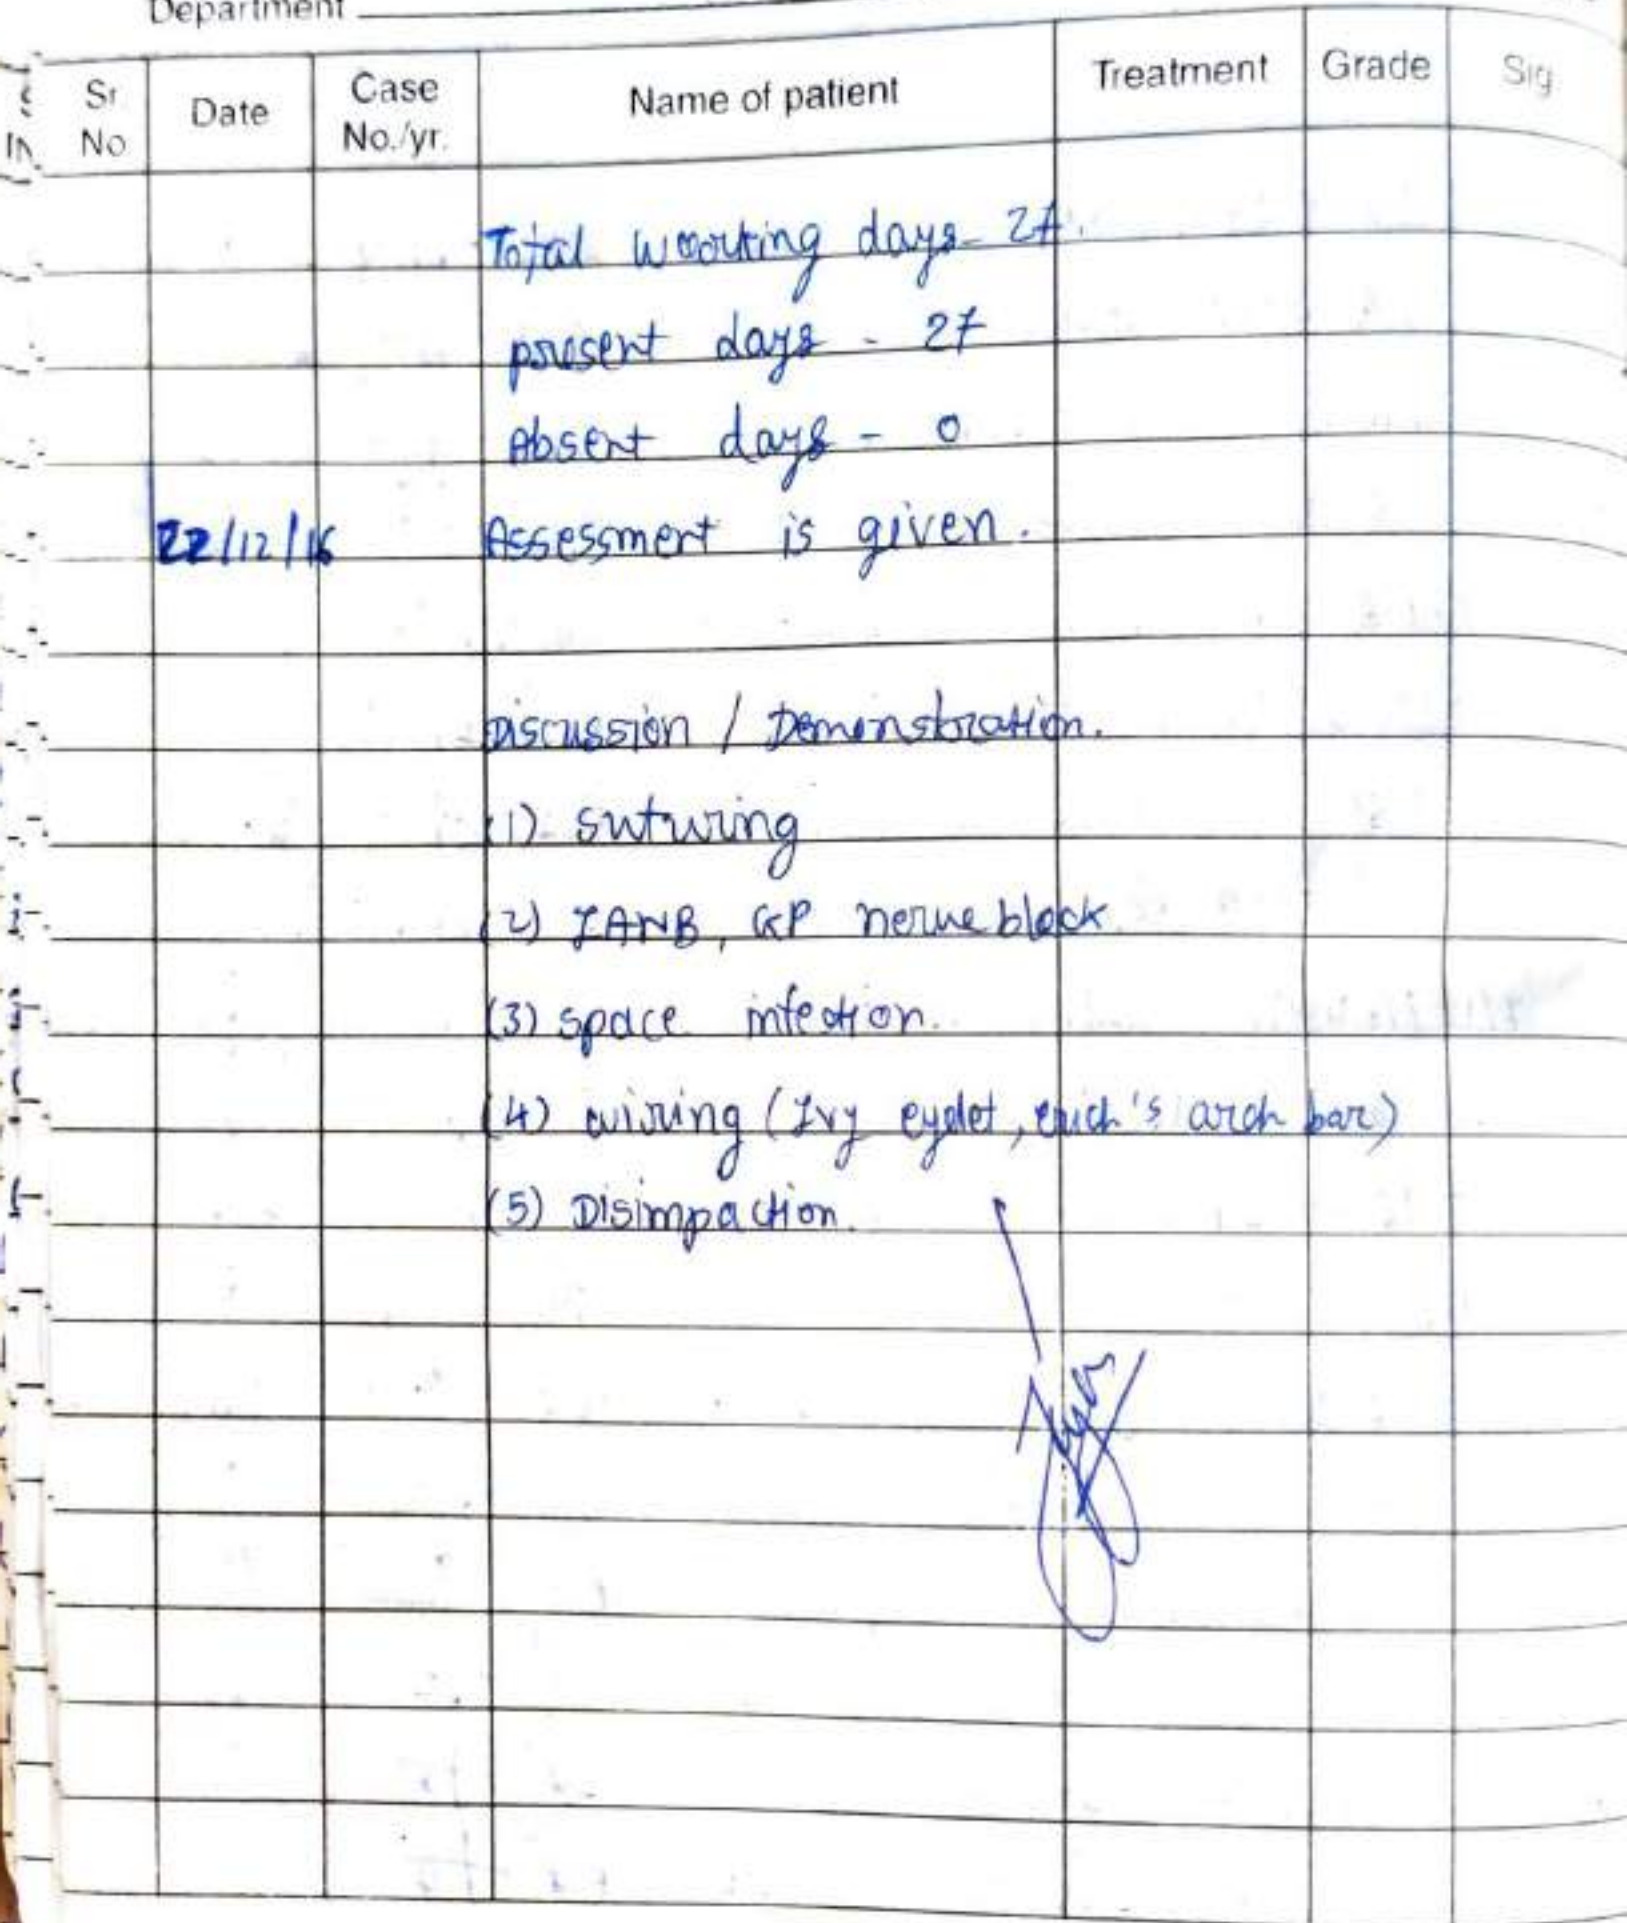 Department
Sr No Date Case No./yr. Name of patient Treatment Grade Sig
Total woorking days - 27.
present days - 27
Absent days - 0
22/12/16 Assessment is given.
Discussion / Demonstration.
(1) suturing
(2) IANB, GP nerve block
(3) space infection.
(4) wiring (Ivy eyelet, erich's arch bar)
(5) Disimpaction.